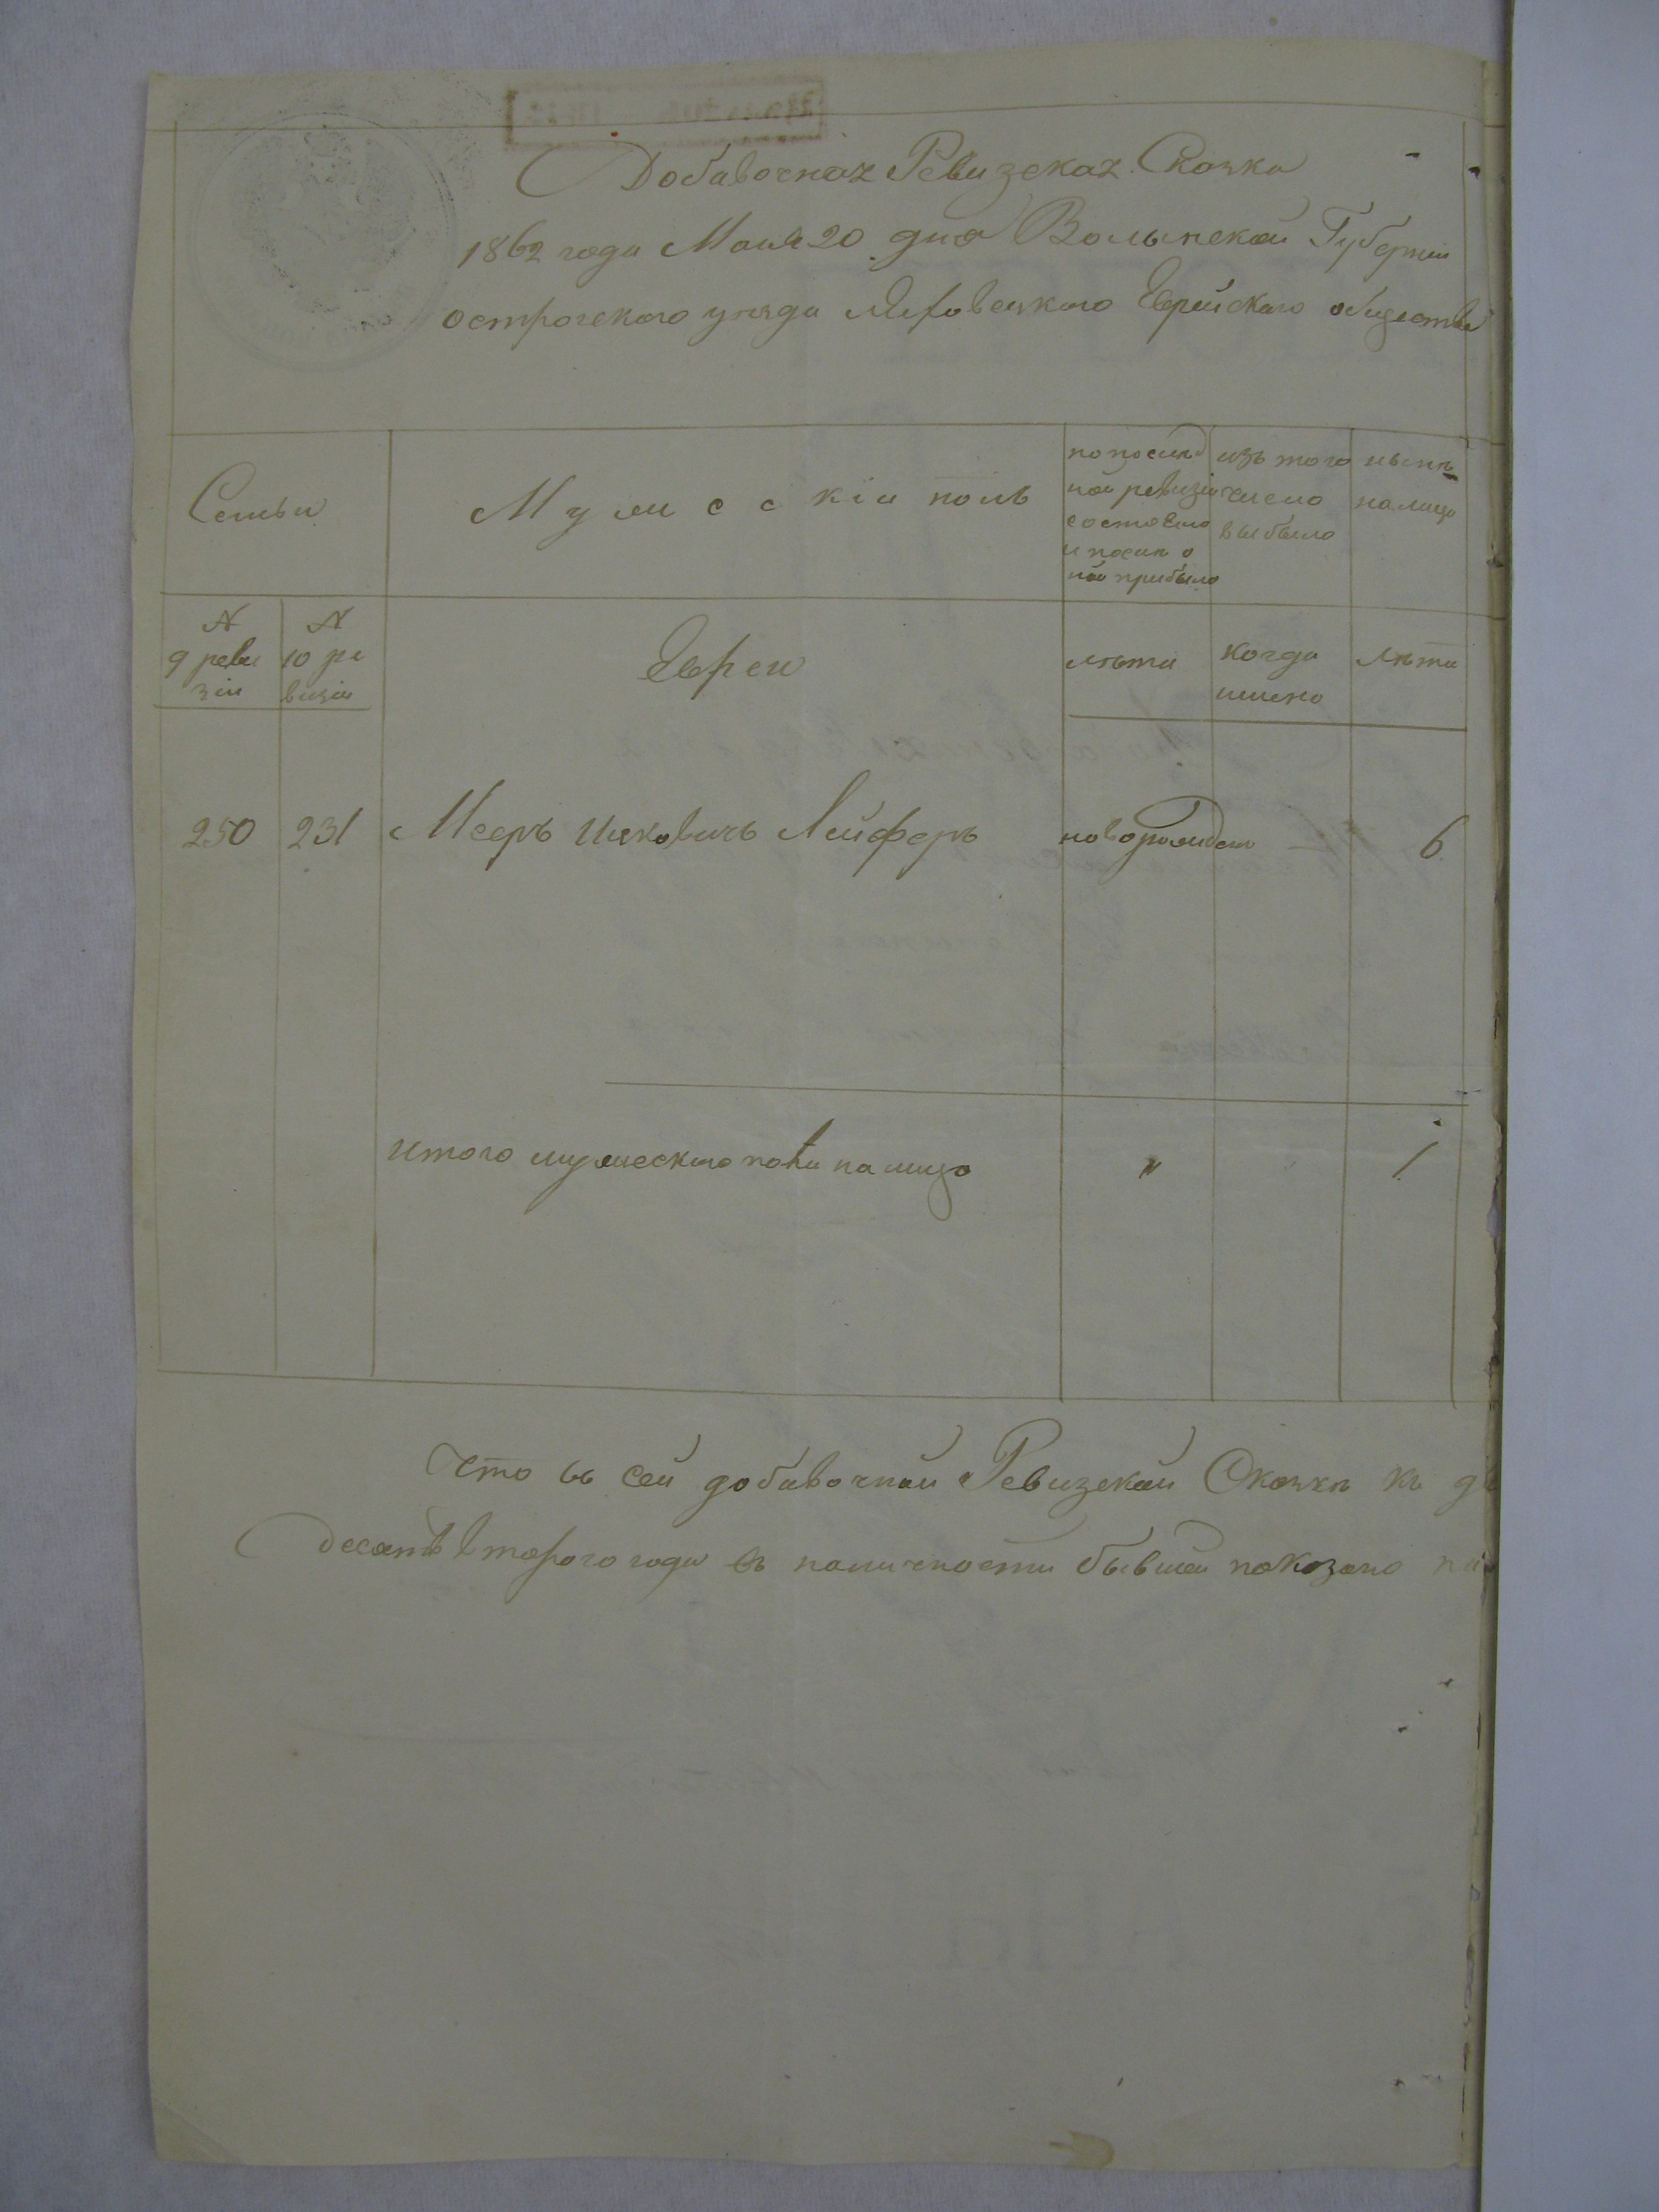 Добавочная Ревизская Сказка
1862 года Мая 20 дня Волынской Губерніи
острогскаго уезда Ляховецкаго Еврейскаго общества
Семьи
Мужескій полъ
по послѣд
ней ревизіи
состояло
и после о
ной прибыло
изъ того
числа
выбыло
нынѣ
налицо
N
9 реви
зіи
N
10 ре
визіи
Евреи
лѣта
когда
имено
Лѣта
250 231 Мееръ Ицковичъ Лейферъ новорожден 6
итого мужескаго пола на лицо " 1
Что въ сей добавочной Ревизской Сказкѣ къ
десятъ второго года въ наличности бывшей показано